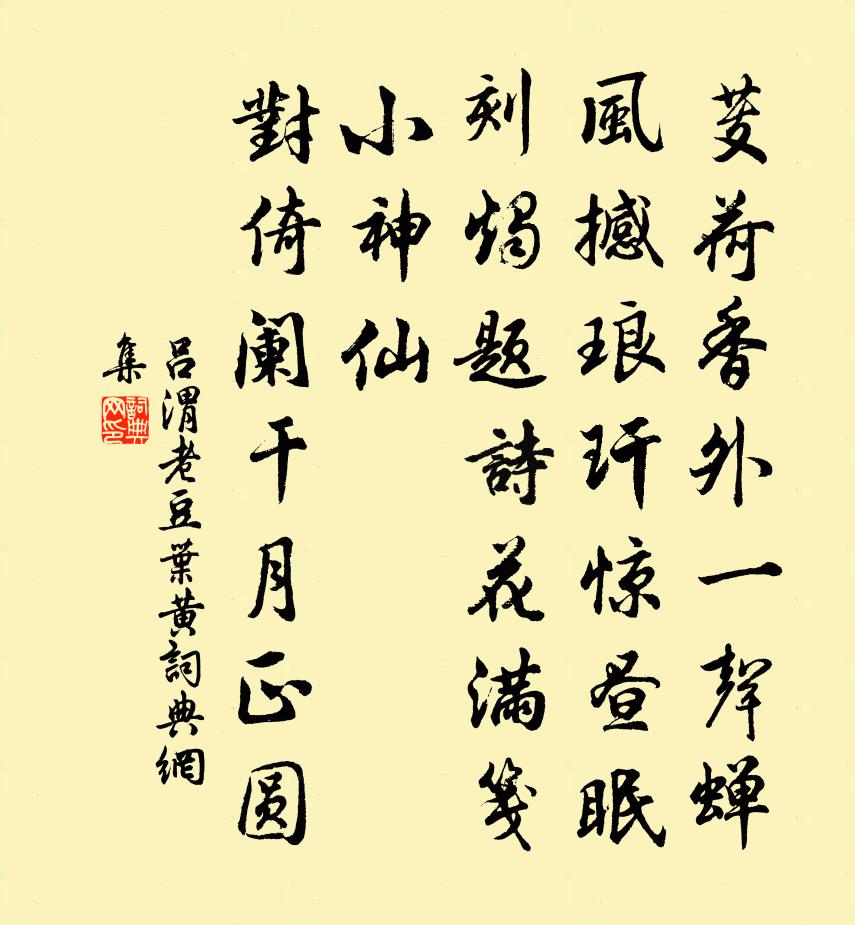 芰荷香外一聲蝉
風撼琅玕惊昼眠
刻燭题詩花满箋
小神仙
對倚阑干月正圆
吕渭老豆葉黄詞典網
集
詞典
网印